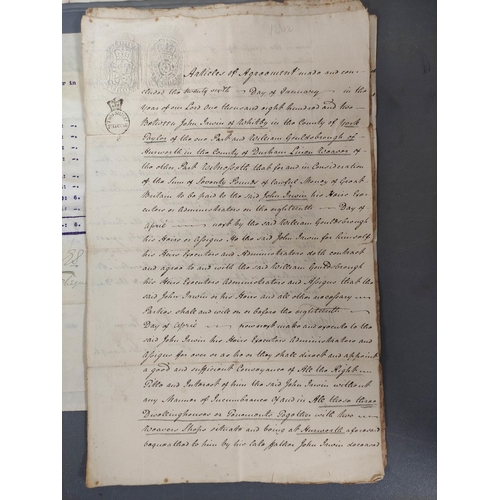 1802
Articles of Agreement made and con-
cluded the twenty sixth Day of January in the
Year of our Lord One thousand eight hundred and two
Between John Irwin of Whitby in the County of York
Taylor of the one Part and William Gouldsbrough of
Hurworth in the County of Durham Linen Weaver of
the other Part Witnesseth that for and in Consideration
of the Sum of Seventy Pounds of lawful Money of Great
Britain to be paid to the said John Irwin his Heirs Exe-
cutors or Administrators on the eighteenth Day of
April next by the said William Gouldsbrough
his Heirs or Assigns He the said John Irwin for himself
his Heirs Executors and Administrators doth contract
and agree to and with the said William Gouldsbrough
his Heirs Executors Administrators and Assigns that the
said John Irwin or his Heirs and all other necessary
Parties shall and will on or before the eighteenth
Day of April now next make and execute to the
said John Irwin his Heirs Executors Administrators and
Assigns for ever or as he or they shall direct and appoint
a good and sufficient Conveyance of All the Right
Title and Interest of him the said John Irwin without
any Manner of Incumbrance of and in All those three
Dwellinghouses or Tenements Together with two
Weavers Shops situate and being at Hurworth aforesaid
bequeathed to him by his late Father John Irwin deceased